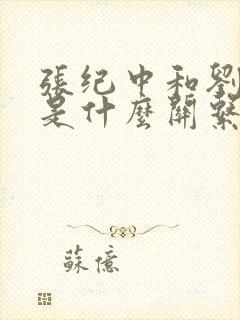 張纪中和劉
是什麼關繫
蘇億